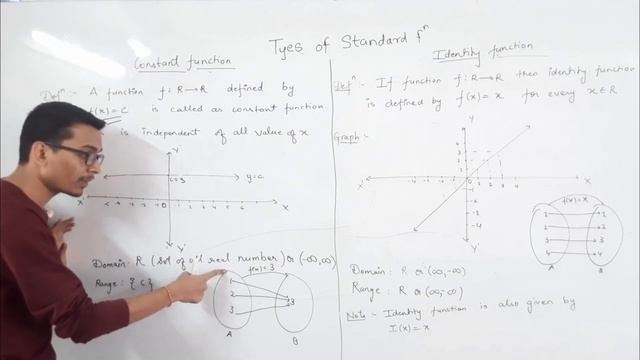 Tyes of Standard fⁿ
Constant function
Defⁿ:- A function f: R→R defined by
f(x)=C is called as constant function
is independent of all value of x.
Y
c=3
y=c
X'
-6 -5 -4 -3 -2 -1 0 1 2 3 4 5 6
X
Y'
Domain:- R (Set of all real number) or (-∞,∞)
Range: {c}
f(x)=3
1
2
3
3
A
B
Identity function
Defⁿ:- If function f: R→R then identity function
is defined by f(x)=x for every x∈R
Graph:-
Y
X'
-4 -3 -2 -1 0 1 2 3 4
X
Y'
f(x)=x
1 1
2 2
3 3
4 4
A B
Domain: R or (∞,-∞)
Range: R or (∞,-∞)
Note:- Identity function is also given by
I(x)=x